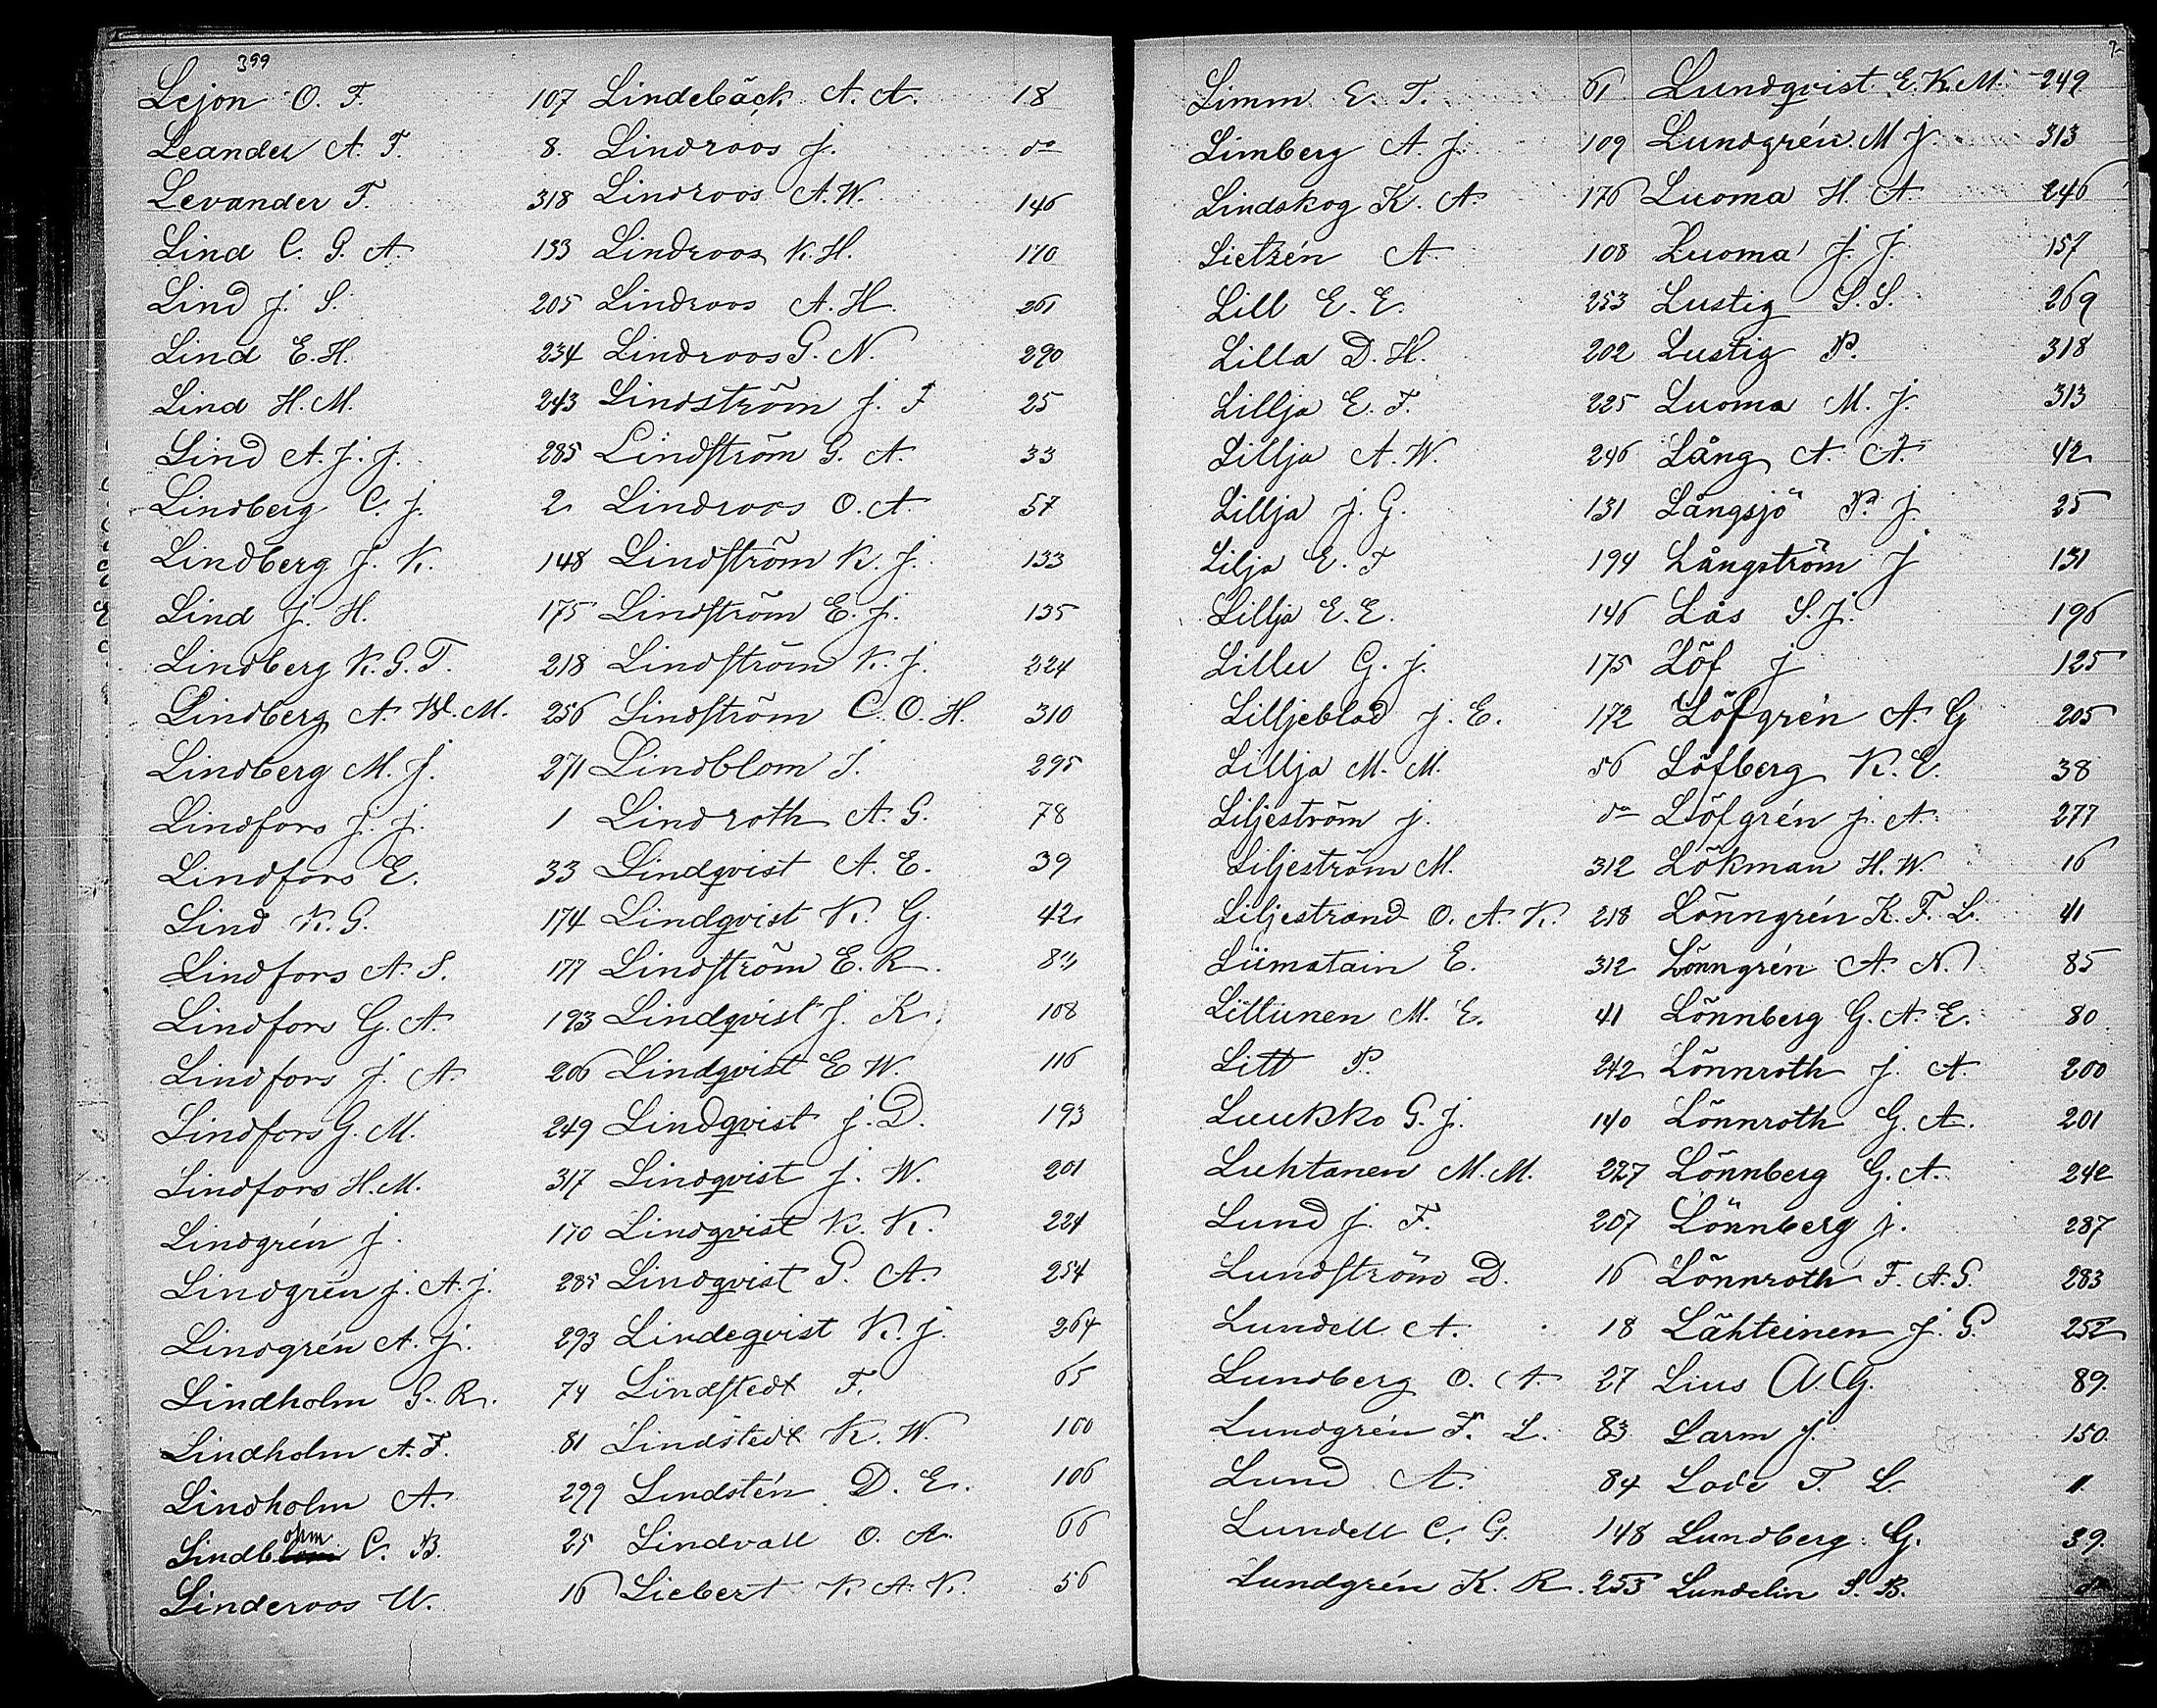 399
Lejon O. F. 107
Leander A. F. 8.
Levander F. 318
Lind C. G. A. 133
Lind J. S. 205
Lind E. H. 234
Lind H. M. 243
Lind A. J. J. 285
Lindberg C. J. 2
Lindberg J. K. 148
Lind J. H. 175
Lindberg K. G. T. 218
Lindberg A. W. M. 256
Lindberg M. J. 271
Lindfors J. J. 1
Lindfors E. 33
Lind K. G. 174
Lindfors A. S. 177
Lindfors G. A. 193
Lindfors J. A. 206
Lindfors G. M. 249
Lindfors H. M. 317
Lindgrén J. 170
Lindgrén J. A. J. 285
Lindgrén A. J. 293
Lindholm G. R. 74
Lindholm A. F. 81
Lindholm A. 299
Lindbohm C. B. 25
Linderoos W. 16
Lindebäck A. A. 18
Lindroos J. do
Lindroos A. W. 146
Lindroos K. H. 170
Lindroos A. H. 261
Lindroos G. N. 290
Lindström J. F 25
Lindström G. A 33
Lindroos O. A. 57
Lindström K. J. 133
Lindström E. J. 135
Lindström K. J. 224
Lindström C. O. H. 310
Lindblom J. 295
Lindroth A. G. 78
Lindqvist A. E. 39
Lindqvist K. G. 42
Lindström E. R.
Lindqvist J. K. 108
Lindqvist E W. 116
Lindqvist J. D. 193
Lindqvist J. W. 201
Lindqvist K. K. 224
Lindqvist G. A. 254
Lindeqvist K. J. 264
Lindstedt F. 65
Lindstedt K. W. 100
Lindstén D. E. 106
Lindvall O. A. 66
Liebert K. A. K. 56
Limm E. F. 61
Limberg A. J. 109
Lindskog K. A. 176
Lietzén A. 108
Lill E. E. 253
Lilla D. H. 202
Lillja E. F. 225
Lillja A. W. 246
Lillja J. G. 131
Lilja E. F 194
Lillja E. E. 146
G. J. 175
Lilljeblad J. E. 172
Lillja M. M. 56
Liljeström J. do
Liljeström M. 312
Liljestrand O. A. K. 218
Liimatain E. 312
M. E. 41
Litt P. 242
Luukko G. J. 140
Luhtanen M. M. 227
Lund J. F. 207
Lundström D. 16
Lundell A. 18
Lundberg O. A. 27
Lundgrén F. L. 83
Lund A. 84
Lundell C. G. 148
Lundgrén K. R. 253
Lundqvist E. K. M. 249
Lundgrén M J. 313
Luoma H. A. 246
Luoma J. J. 157
Lustig S. S. 269
Lustig P. 318
Luoma M. J. 313
Lång A. A. 42
Långsjö P. J. 25
Långström J 131
Lås S. J. 196
Löf J 125
Löfgrén A. G 205
Löfberg K. E. 38
Löfgrén J. A. 277
Lökman H. W. 16
Lönngrén K. F. L. 41
Lönngrén A. N. 85
Lönnberg G. A. E. 80
Lönnroth J. A. 200
Lönnroth G. A. 201
Lönnberg G. A. 242
Lönnberg J. 287
Lönnroth F. A. G. 283
Lähteinen J. G. 252
Lius A. G. 89.
Larm J. 150.
Lode F. L.
Lundberg G. 39.
Lundelin S. B. do